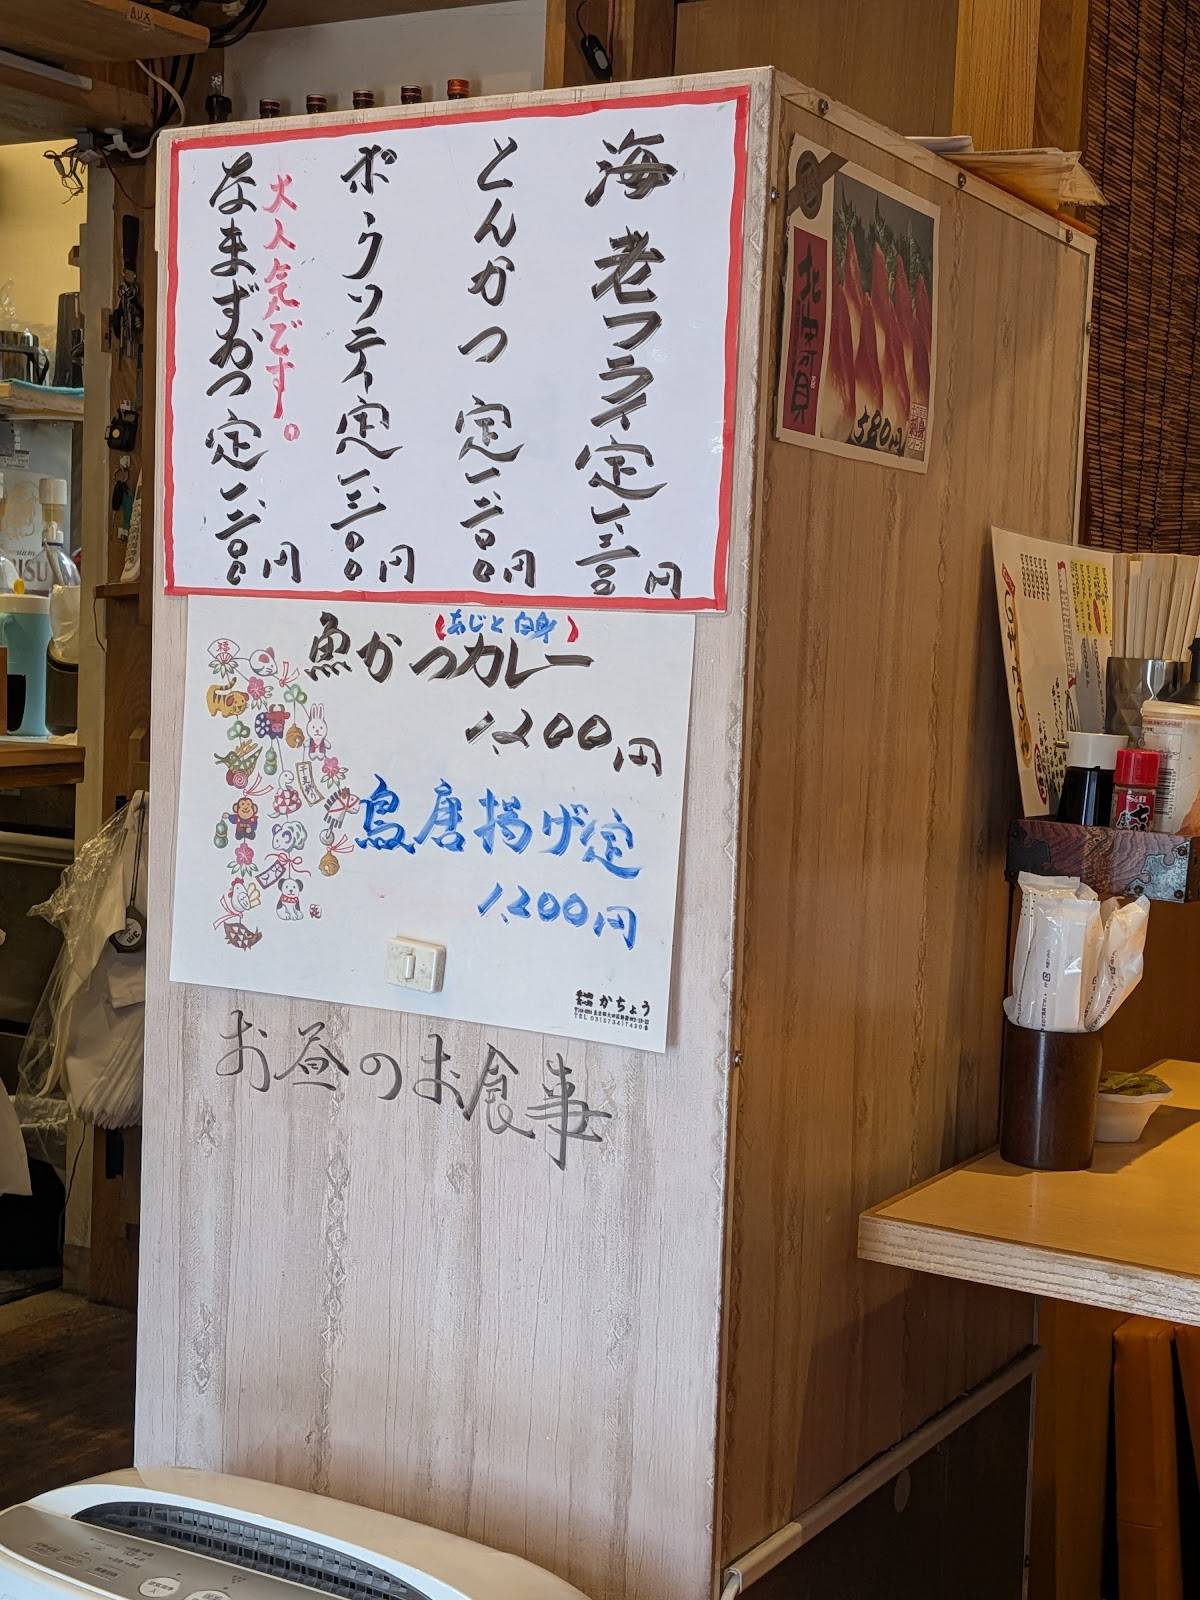 海老フライ定一、三〇〇円
とんかつ定一、二〇〇円
ポークソテー定一、三〇〇円
大人気です。
なまずかつ定一、二〇〇円
(あじと白身)
魚かつカレー
1,200円
鳥唐揚げ定
1,200円
福
かちょう
お昼のお食事
北寄貝
580円
刺身
S&B
AUX
3m